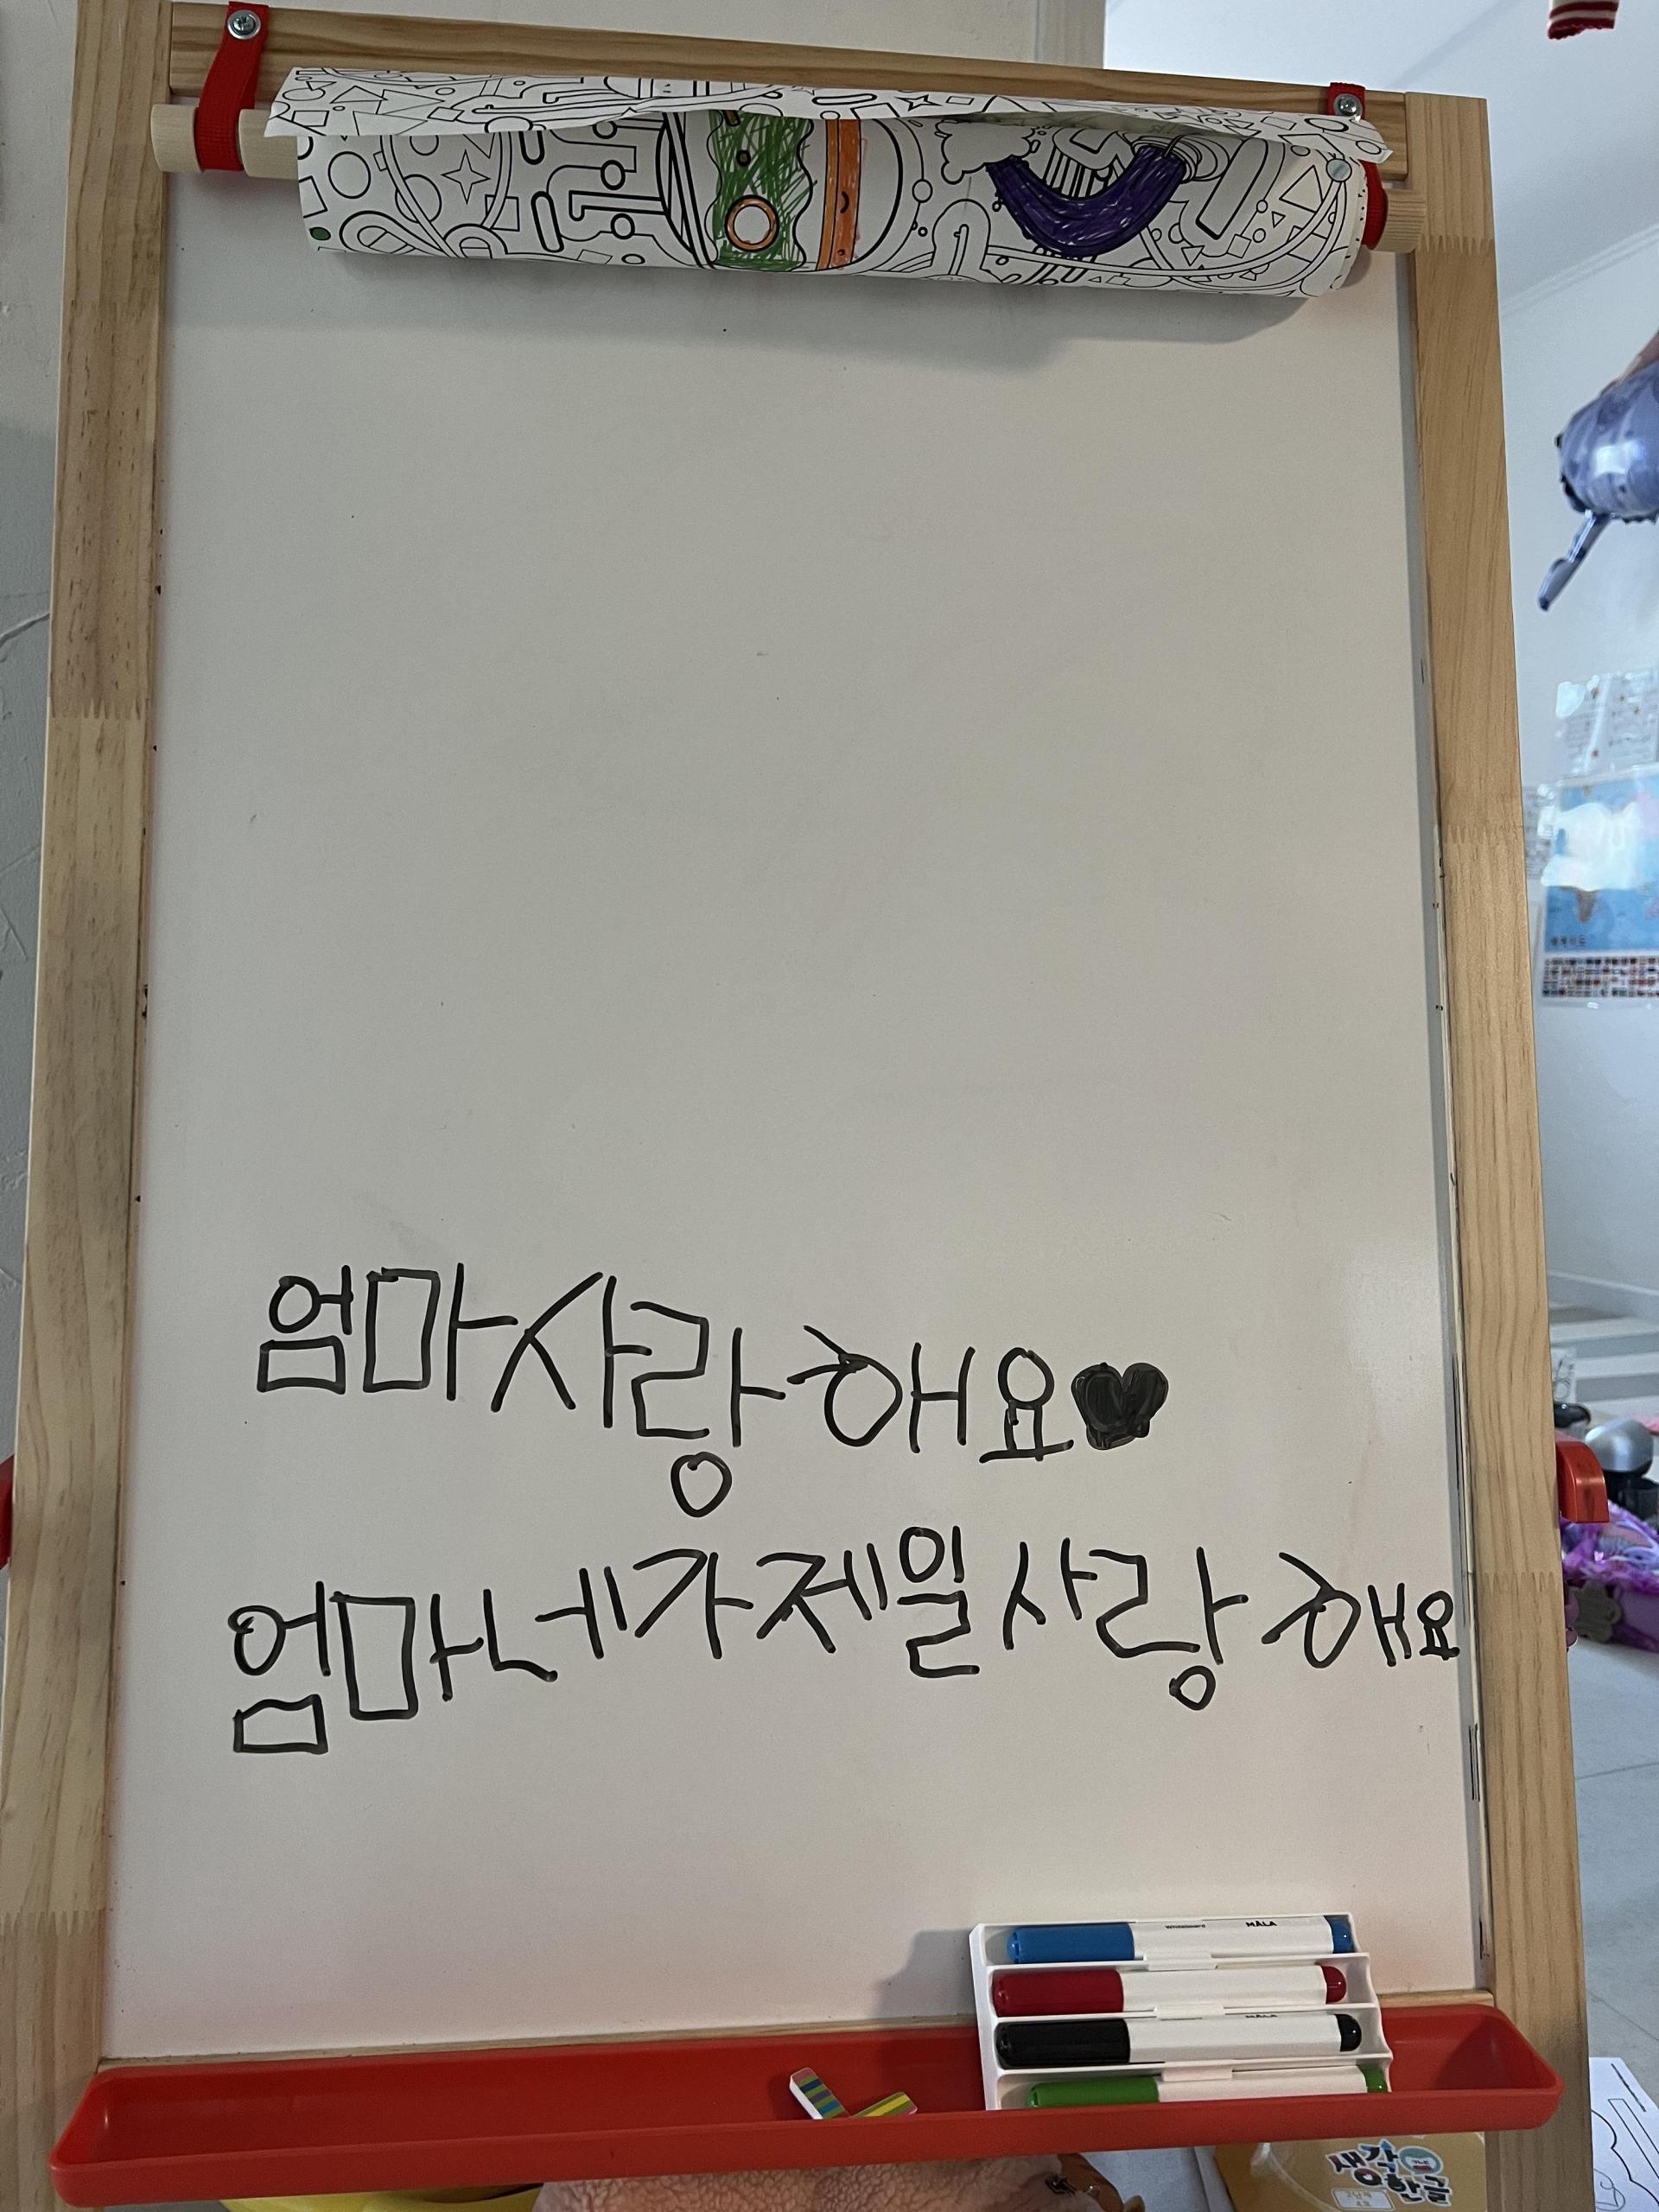 엄마사랑해요♥
엄마네가제일사랑해요
Whiteboard MÅLA
MÅLA
생각
한글